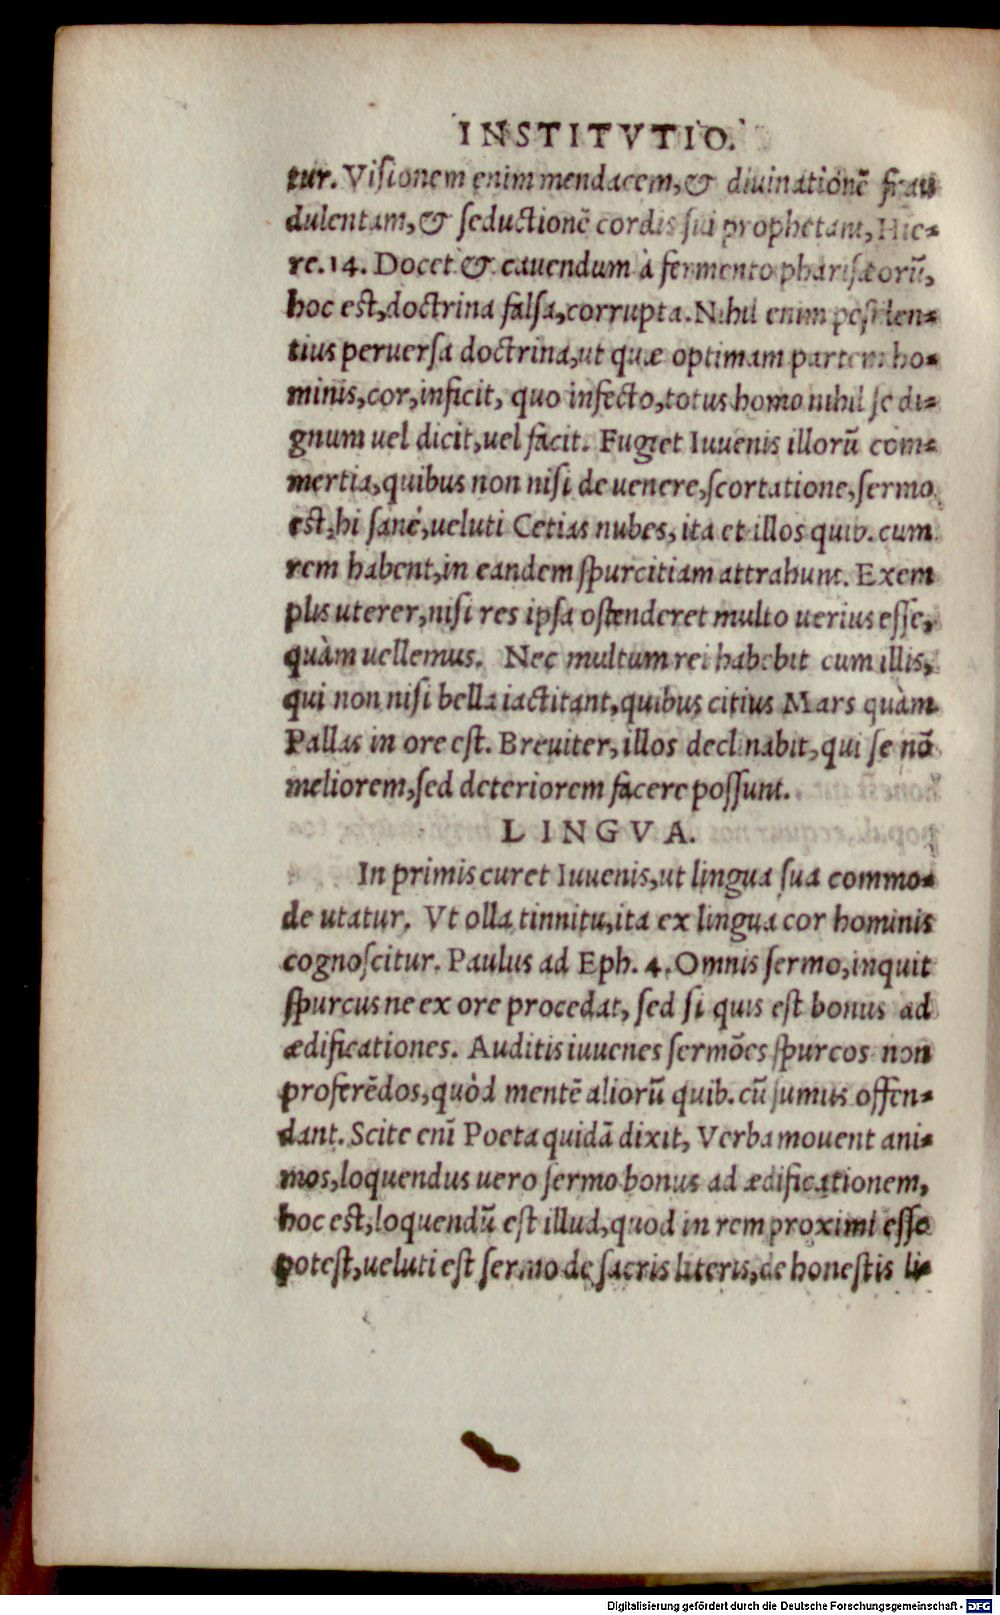 INSTITVTIO.
tur. Visionem enim mendacem, & diuinationẽ frau
dulentam, & seductionẽ cordis sui prophetant, Hie-
re. 14. Docet & cauendum à fermento pharisæorũ,
hoc est, doctrina falsa, corrupta. Nihil enim pestilen-
tius peruersa doctrina, ut quæ optimam partem ho-
minis, cor, inficit, quo infecto, totus homo nihil se di-
gnum uel dicit, uel facit. Fugiet Iuuenis illorũ com-
mertia, quibus non nisi de uenere, scortatione, sermo
est, hi sanè, ueluti Cetias nubes, ita et illos quib. cum
rem habent, in eandem spurcitiam attrahunt. Exem
plis uterer, nisi res ipsa ostenderet multo uerius esse,
quàm uellemus. Nec multum rei habebit cum illis,
qui non nisi bella iactitant, quibus citius Mars quàm
Pallas in ore est. Breuiter, illos declinabit, qui se nõ
meliorem, sed deteriorem facere possunt.
LINGVA.
In primis curet Iuuenis, ut lingua sua commo-
de utatur. Vt olla tinnitu, ita ex lingua cor hominis
cognoscitur. Paulus ad Eph. 4. Omnis sermo, inquit
spurcus ne ex ore procedat, sed si quis est bonus ad
ædificationes. Auditis iuuenes sermões spurcos non
proferẽdos, quòd mentẽ aliorũ quib. cũ sumus offen-
dant. Scite enĩ Poeta quidã dixit, Verba mouent ani-
mos, loquendus uero sermo bonus ad ædificationem,
hoc est, loquendũ est illud, quod in rem proximi esse
potest, ueluti est sermo de sacris literis, de honestis li-
Digitalisierung gefördert durch die Deutsche Forschungsgemeinschaft - DFG